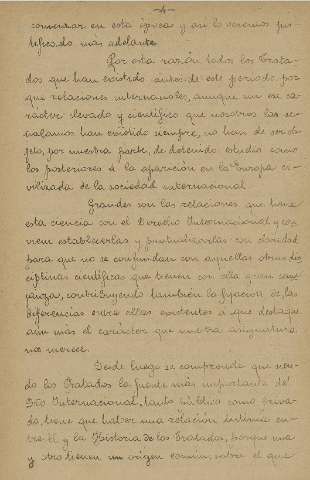 -4-
comenzar en esta época y así lo veremos jus-
tificado más adelante
Por esta razón todos los Trata-
dos que han existido antes de este periodo, por
que relaciones internacionales, aunque sin ese ca-
racter elevado y científico que nosotros las se-
ñalamos han existido siempre, no han de ser ob-
jeto, por nuestra parte, de detenido estudio como
los posteriores á la aparición en la Europa ci-
vilizada de la sociedad internacional
Grandes son las relaciones que tiene
esta ciencia con el Derecho Internacional y con
viene establecerlas y puntualizarlas con claridad
para que no se confundan con aquellas otras dis
ciplinas científicas que tienen con ella gran seme
janza, contribuyendo también la fijación de las
diferencias entre ellas existentes á que destaque
aún más el carácter que nuestra asignatura
nos merece.
Desde luego se comprende que sien-
do los Tratados la fuente más importante del
Dro Internacional, tanto público como priva-
do, tiene que haber una relación íntima en-
tre él y la Historia de los Tratados, porque una
y otro tienen un origen común, sobre el que